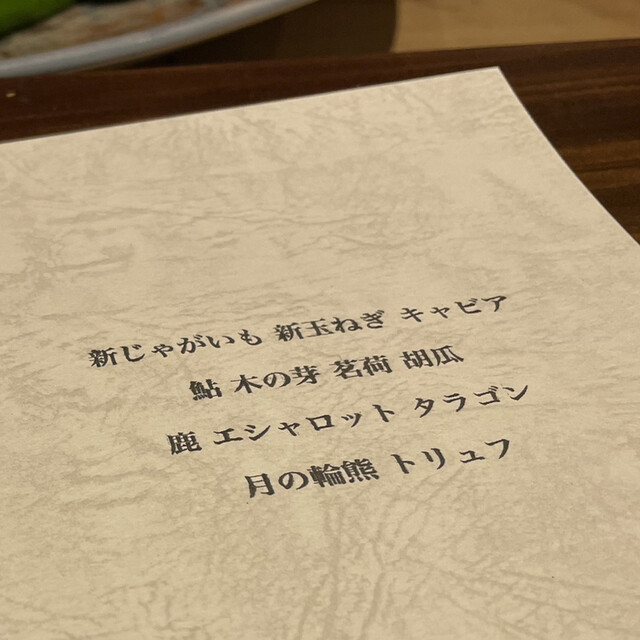 新じゃがいも 新玉ねぎ キャビア
鮎 木の芽 茗荷 胡瓜
鹿 エシャロット タラゴン
月の輪熊 トリュフ